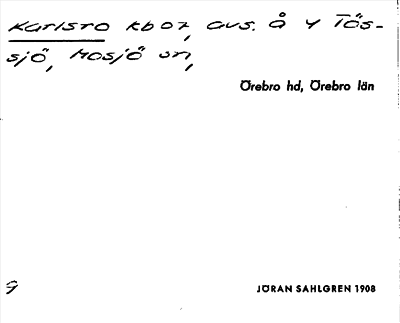 Karlsro kboz, avs. å 4 Tös-
sjö, Mosjö sn,
Örebro hd, Örebro län
JÖRAN SAHLGREN 1908